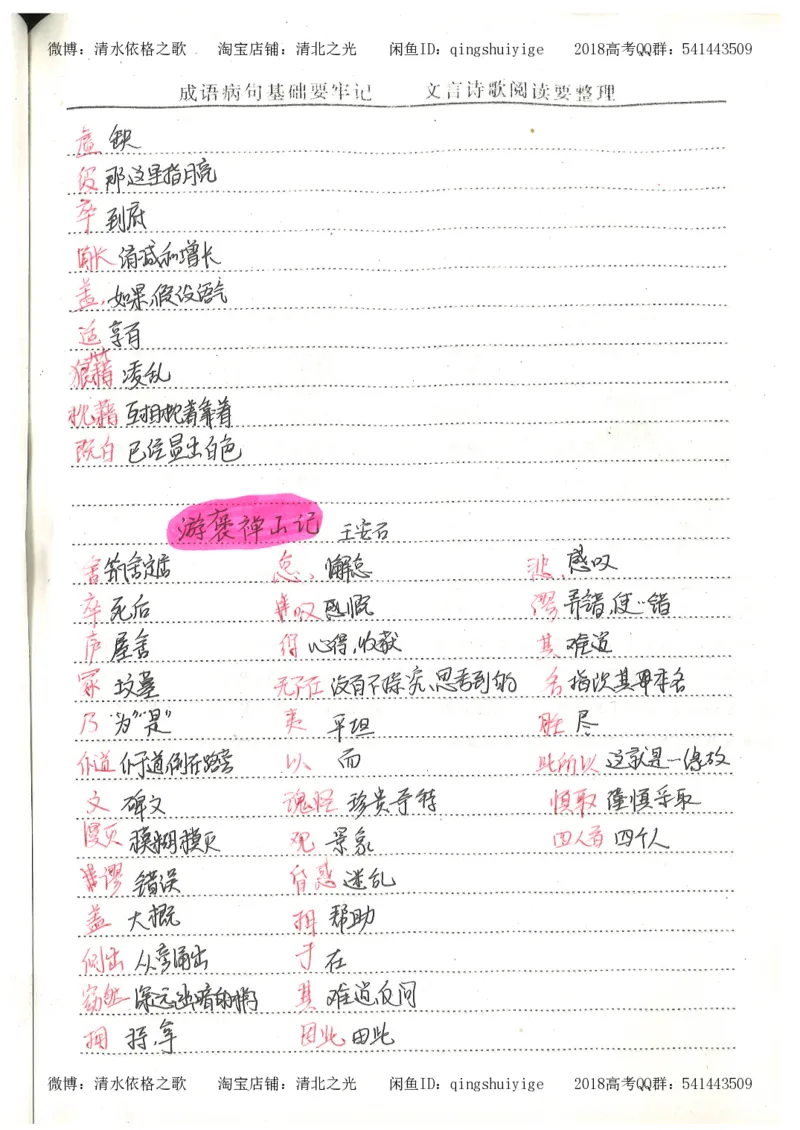 微博：清水依格之歌 淘宝店铺：清北之光 闲鱼ID：qingshuiyige 2018高考QQ群：541443509
成语病句基础要牢记 文言诗歌阅读要整理
虚 缺
彼 那这里指月亮
卒 到底
消长 消减和增长
盖，如果，假设语气
适 享有
狼藉 凌乱
枕藉 互相枕着靠着
既白 已经显出白色
游褒禅山记 王安石
舍 筑舍定居 怠、懈怠 悲、感叹
卒 死后 叹 感慨 谬 弄错，使…错
庐 屋舍 得 心得，收获 其 难道
冢 坟墓 无不在 没有不探究、思考到的 名
乃 为“是” 夷 平坦 胜 尽
仆道 仆道倒在路旁 以 而 此所以 这就是…缘故
文 碑文 瑰怪 珍贵奇特 慎取 谨慎采取
漫灭 模糊磨灭 观 景象 四人者 四个人
谬 错误 昏惑 迷乱
盖 大概 拥 帮助
侧出 从旁涌出 于 在
窈然 深远幽暗的样子 其 难道反问
拥 持，拿 因此 由此
微博：清水依格之歌 淘宝店铺：清北之光 闲鱼ID：qingshuiyige 2018高考QQ群：541443509